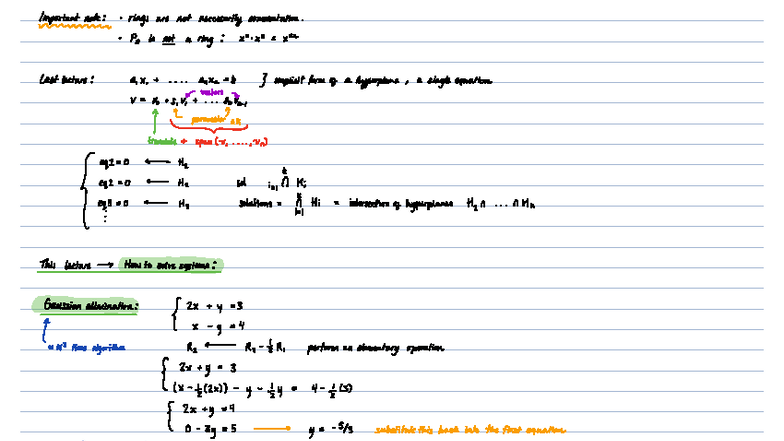 Important note: • rings are not necessarily commutative.
• Pn is not a ring: xⁿ·xⁿ = x²ⁿ
Last lecture: a₁x₁ + .... aₙxₙ = b } implicit form of a hyperplane, a single equation
vectors
V = + s₁v₁ + ...
parameter
translate + span(v₁, ...., vₙ)
eq1=0 ← H₁
eq2=0 ← H₂ sol ⋂ Hᵢ
eq3=0 ← H₃ solutions = ⋂ Hᵢ = intersection of hyperplanes H₁ ∩ ... ∩ Hₖ
⋮
This lecture → How to solve systems:
Gaussian elimination:
{ 2x + y = 3
x - y = 4
n³ time algorithm
R₂ ← R₂ - ½ R₁ perform an elementary operation
{ 2x + y = 3
(x - ½(2x)) - y - ½y = 4 - ½(3)
{ 2x + y = 4
0 - 3y = 5 → y = -5/3 substitute this back into the first equation